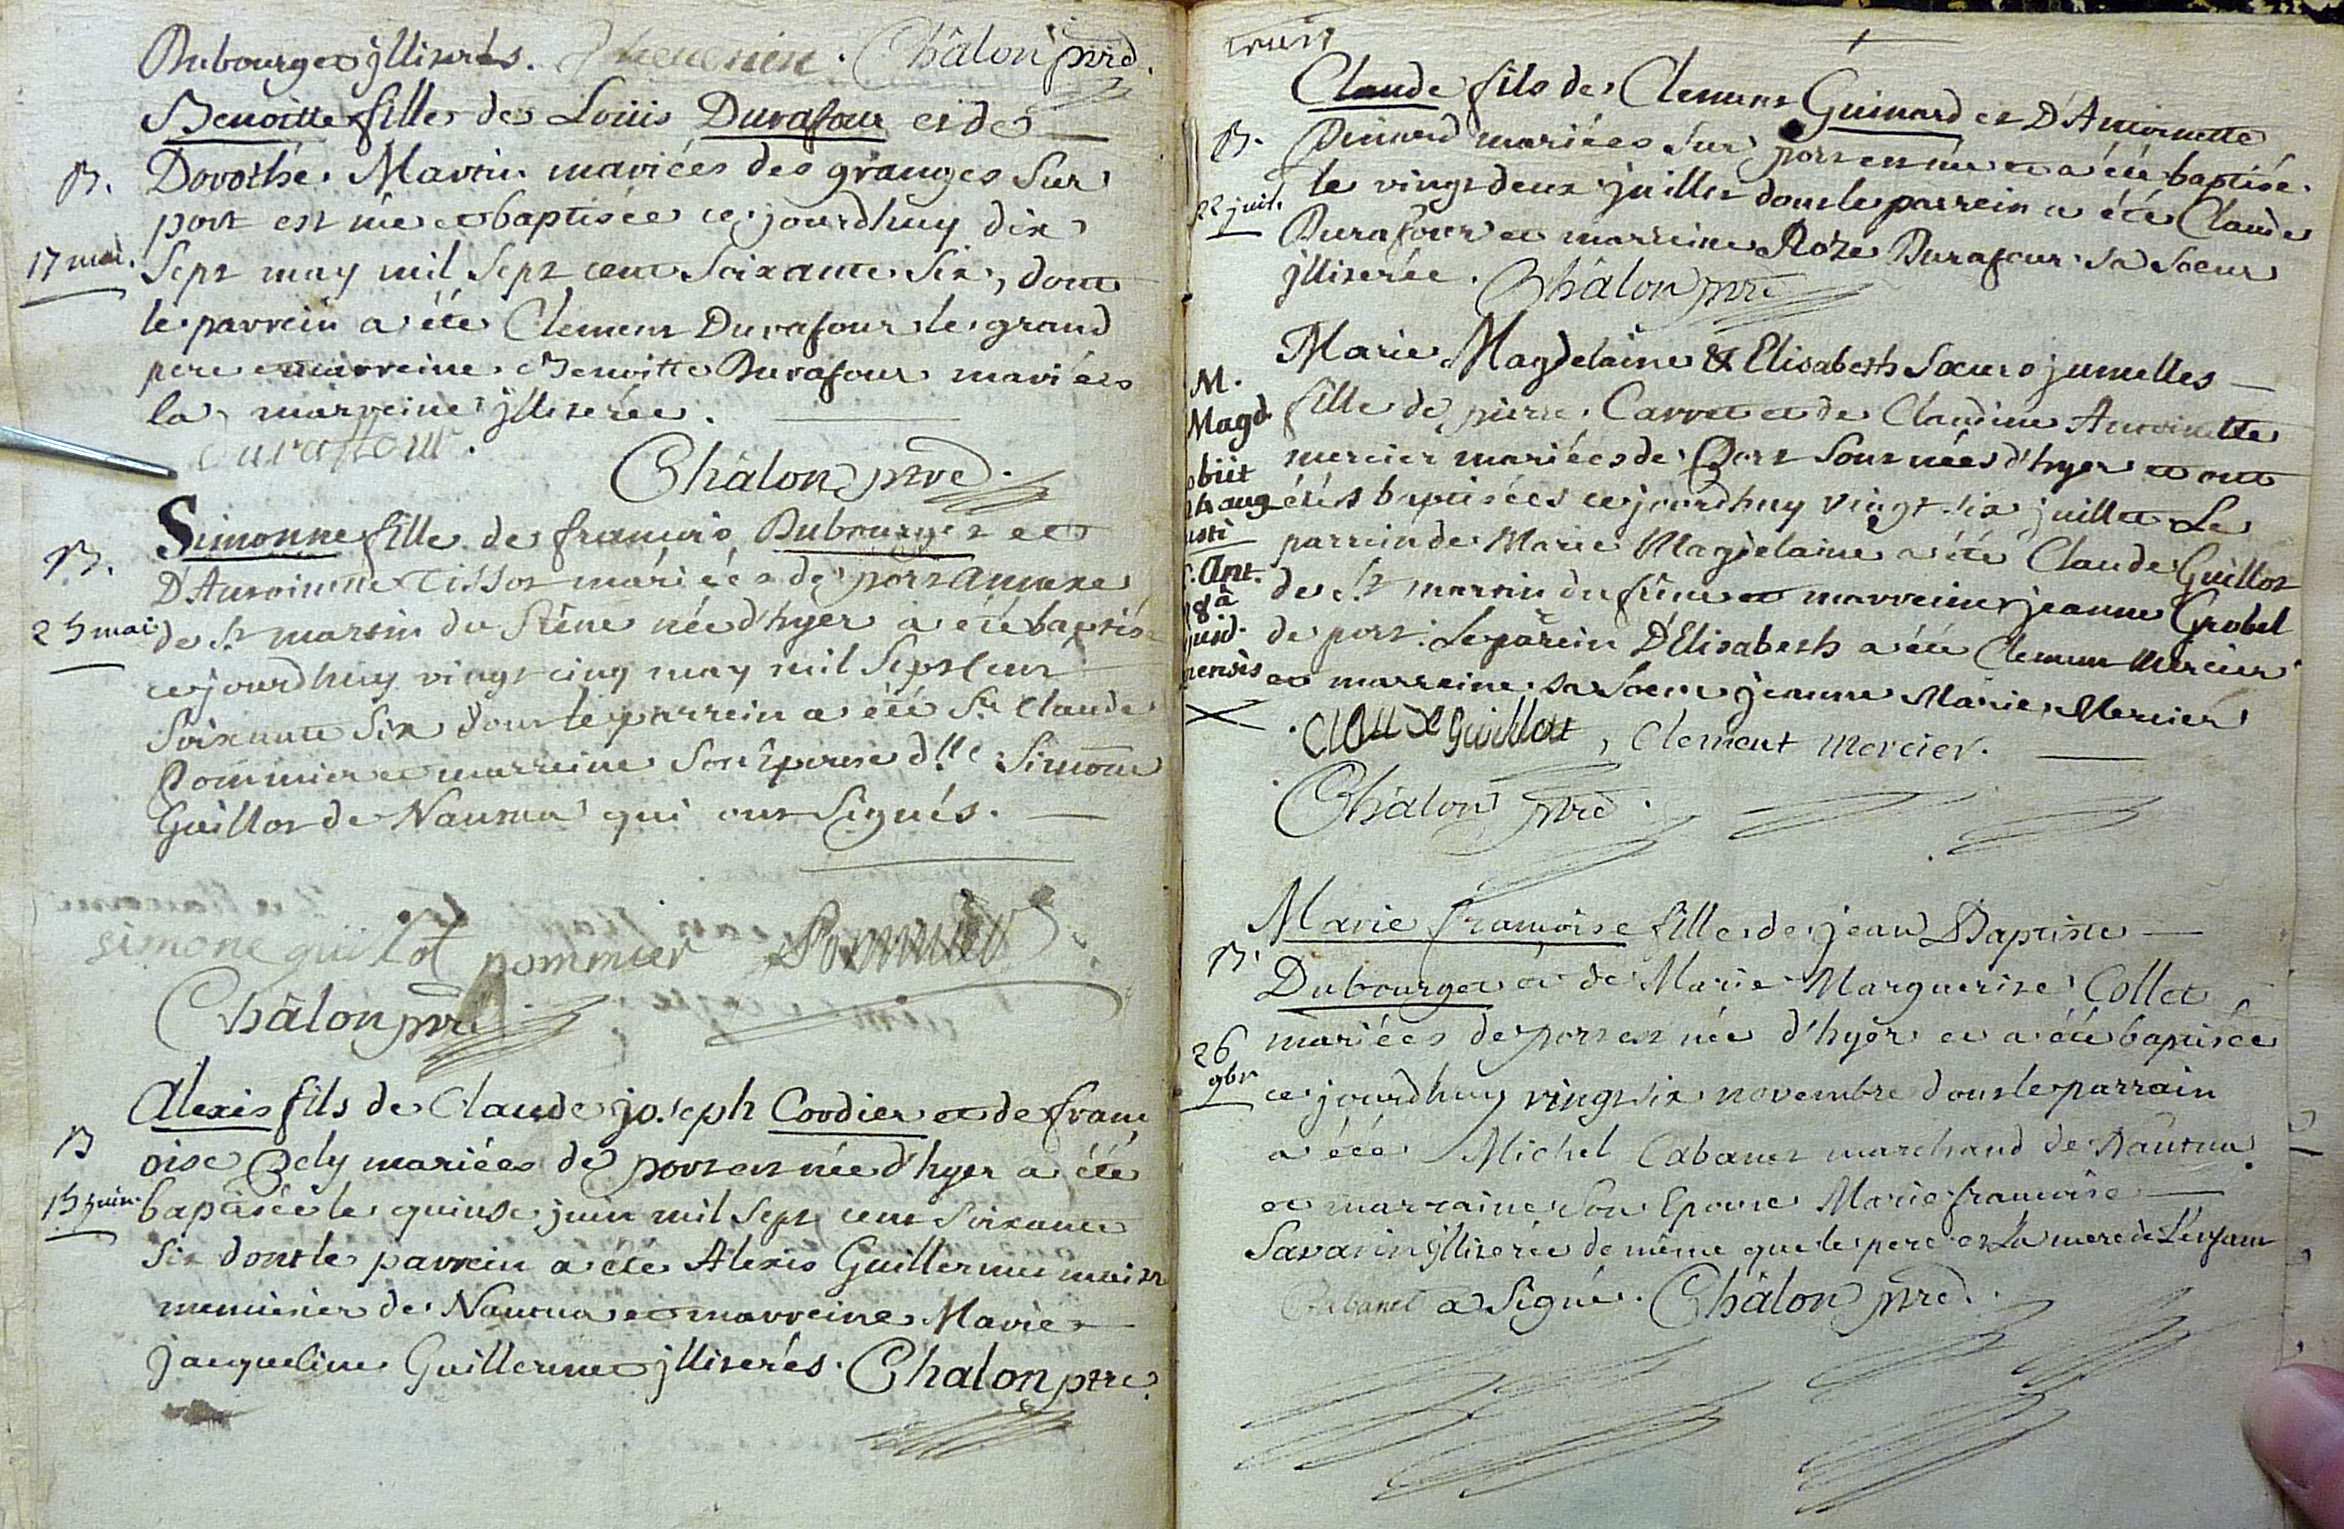 Dubourget jlliterés. Thevenin. Châlon ptre.
Benoitte fille de Loüis Durafour et de
B. Dorothé Martin mariées des granges Sur
port est née et baptisée ce jourdhuy dix
17 mai. Sept may mil Sept cent Soixante Six, dont
le parrein a été Clement Durafour le grand
pere et marreine Benoitte Durafour mariées
la marreine jlliterée.
duraffour.
Châlon ptre.
Simonne fille de francois Dubourget et
B. D'Antoinette Tissot mariées de port annexe
25 mai de St martin du frêne née d'hyer a été baptisé
ce jourdhuy vingt cinq may mil Sept Cent
Soixante Six dont le parrein a été Sr. Claude
Pommier et marreine Son Epouse dlle. Simonne
Guillot de Nantua qui ont Signés.
simone guillot pommier Pommier
Châlon ptre
Alexis fils de Claude joseph Cordier et de franç
B oise Zely mariées de port est née d'hyer a été
15 juin. baptisée le quinse juin mil Sept cent Soixante
Six dont le parrein a été Alexis Guillermet maitre
menuisier de Nantua et marreine Marie
jacqueline Guillermet jlliterés. Chalon ptre.
Claude fils de Clement Guinard et D'Antoinette
B. Pinard mariées Sur port est née et a été baptisée
22 juil. le vingt deux juillet dont le parrein a été Claude
Durafour et marreine Roze Durafour sa soeur
jlliterée. Châlon ptre
Marie Magdelaine & Elisabeth Soeurs jumelles
M. Magd. fille de pierre Carret et de Claudine Antoinette
mercier mariées de Port Sont nées d'hyer et ont
obiit 14 aug étés baptisées ce jourdhuy vingt six juillet Le
usti parrein de Marie Magdelaine a été Claude Guillot
Ant. de St martin du frêne et marreine jeanne Grobel
18 a de port. Le parein D'Elisabeth a été Clement Mercier
ejusd. mensis et marreine sa Soeur jeanne Marie Mercier
Claude Guillot, Clement mercier.
Châlon ptre.
Marie françoise fille de jean Baptiste
B. Dubourget et de Marie Marguerite Collet
26 mariées de port est née d'hyer et a été baptisée
9br ce jourdhuy vingt six novembre dont le parrain
a été Michel Cabanet marchand de Nantua
et marraine Son Epouse Marie francoise
Savarin jlliterée de même que le pere et La mere de L'enfant
Cabanet a Signé. Châlon ptre.